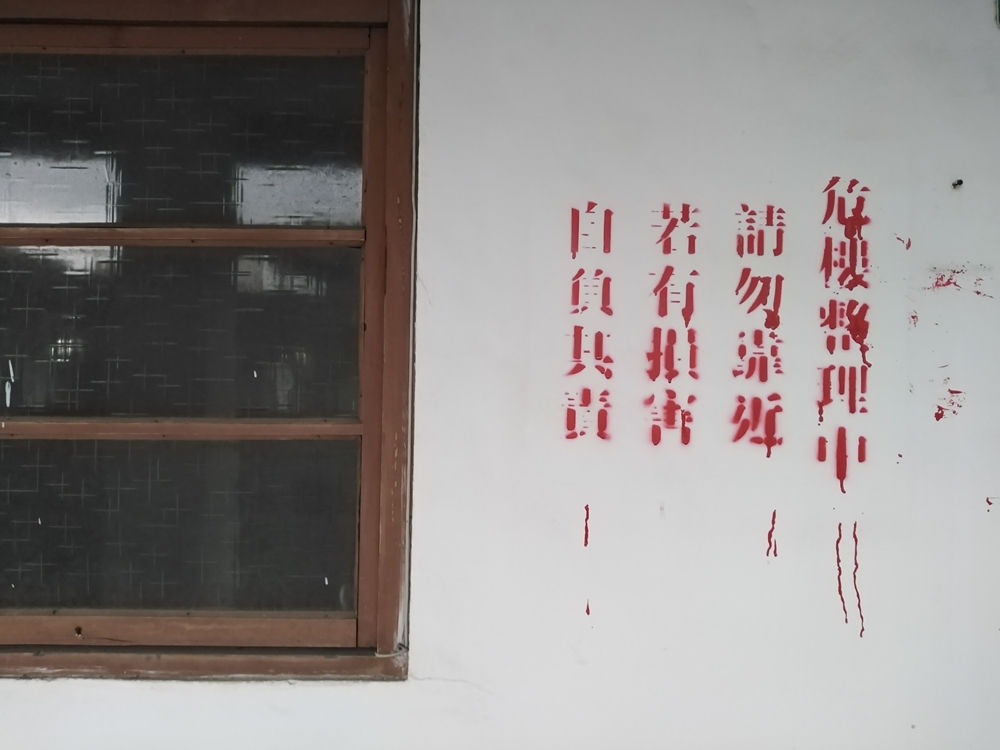 危樓整理中
請勿靠近
若有損害
自負其責